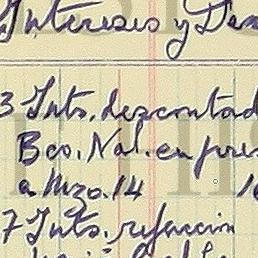 Intereses y Dan
3 Ints. descontad
Bco. Nal. en pres
a Mzo. 14
7 Ints. refacción